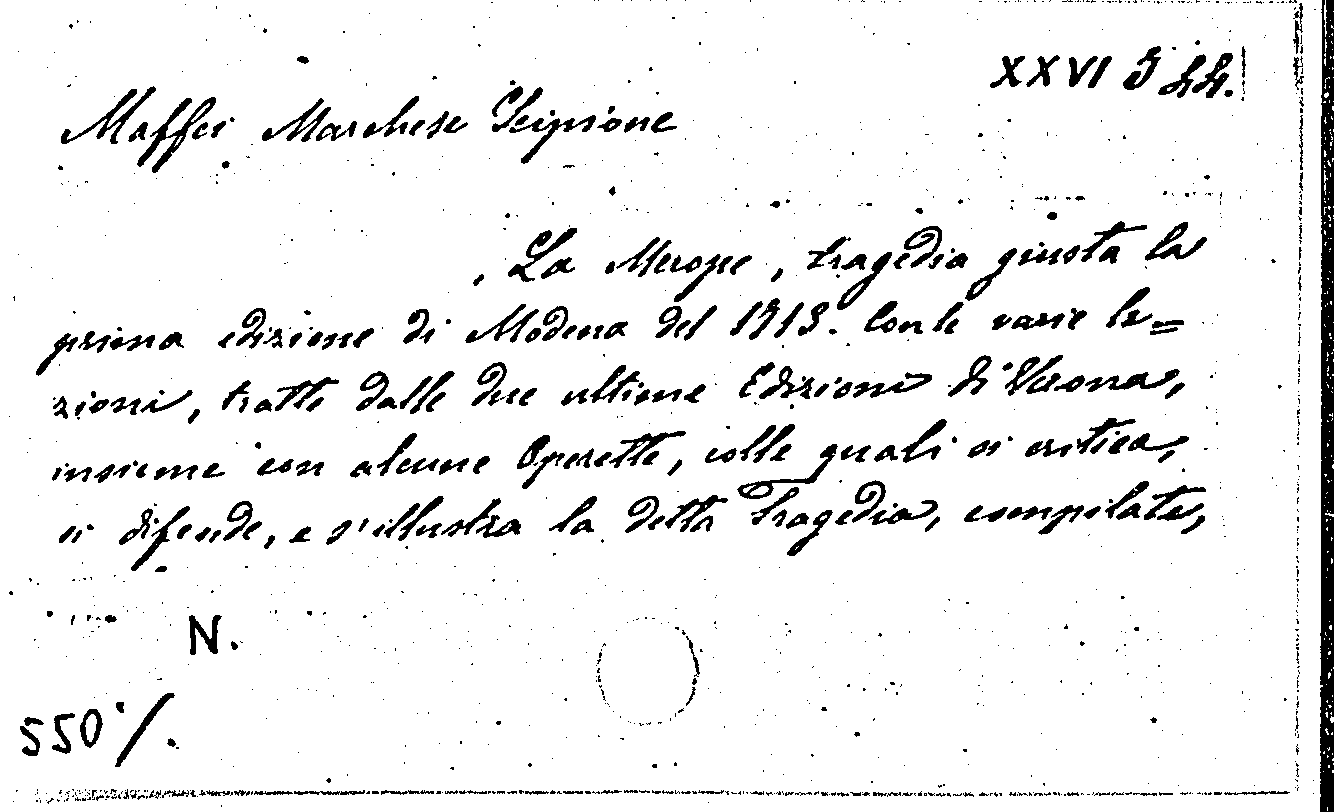 XXVI 5 44.
Maffei Marchese Scipione
, La Merope, tragedia giusta la
prima edizione di Modena del 1713. Con le varie le=
zioni, tratte dalle due ultime Edizioni di Verona,
insieme con alcune Operette, colle quali si critica,
si difende, e s'illustra la detta Tragedia, compilate,
N.
550 /.